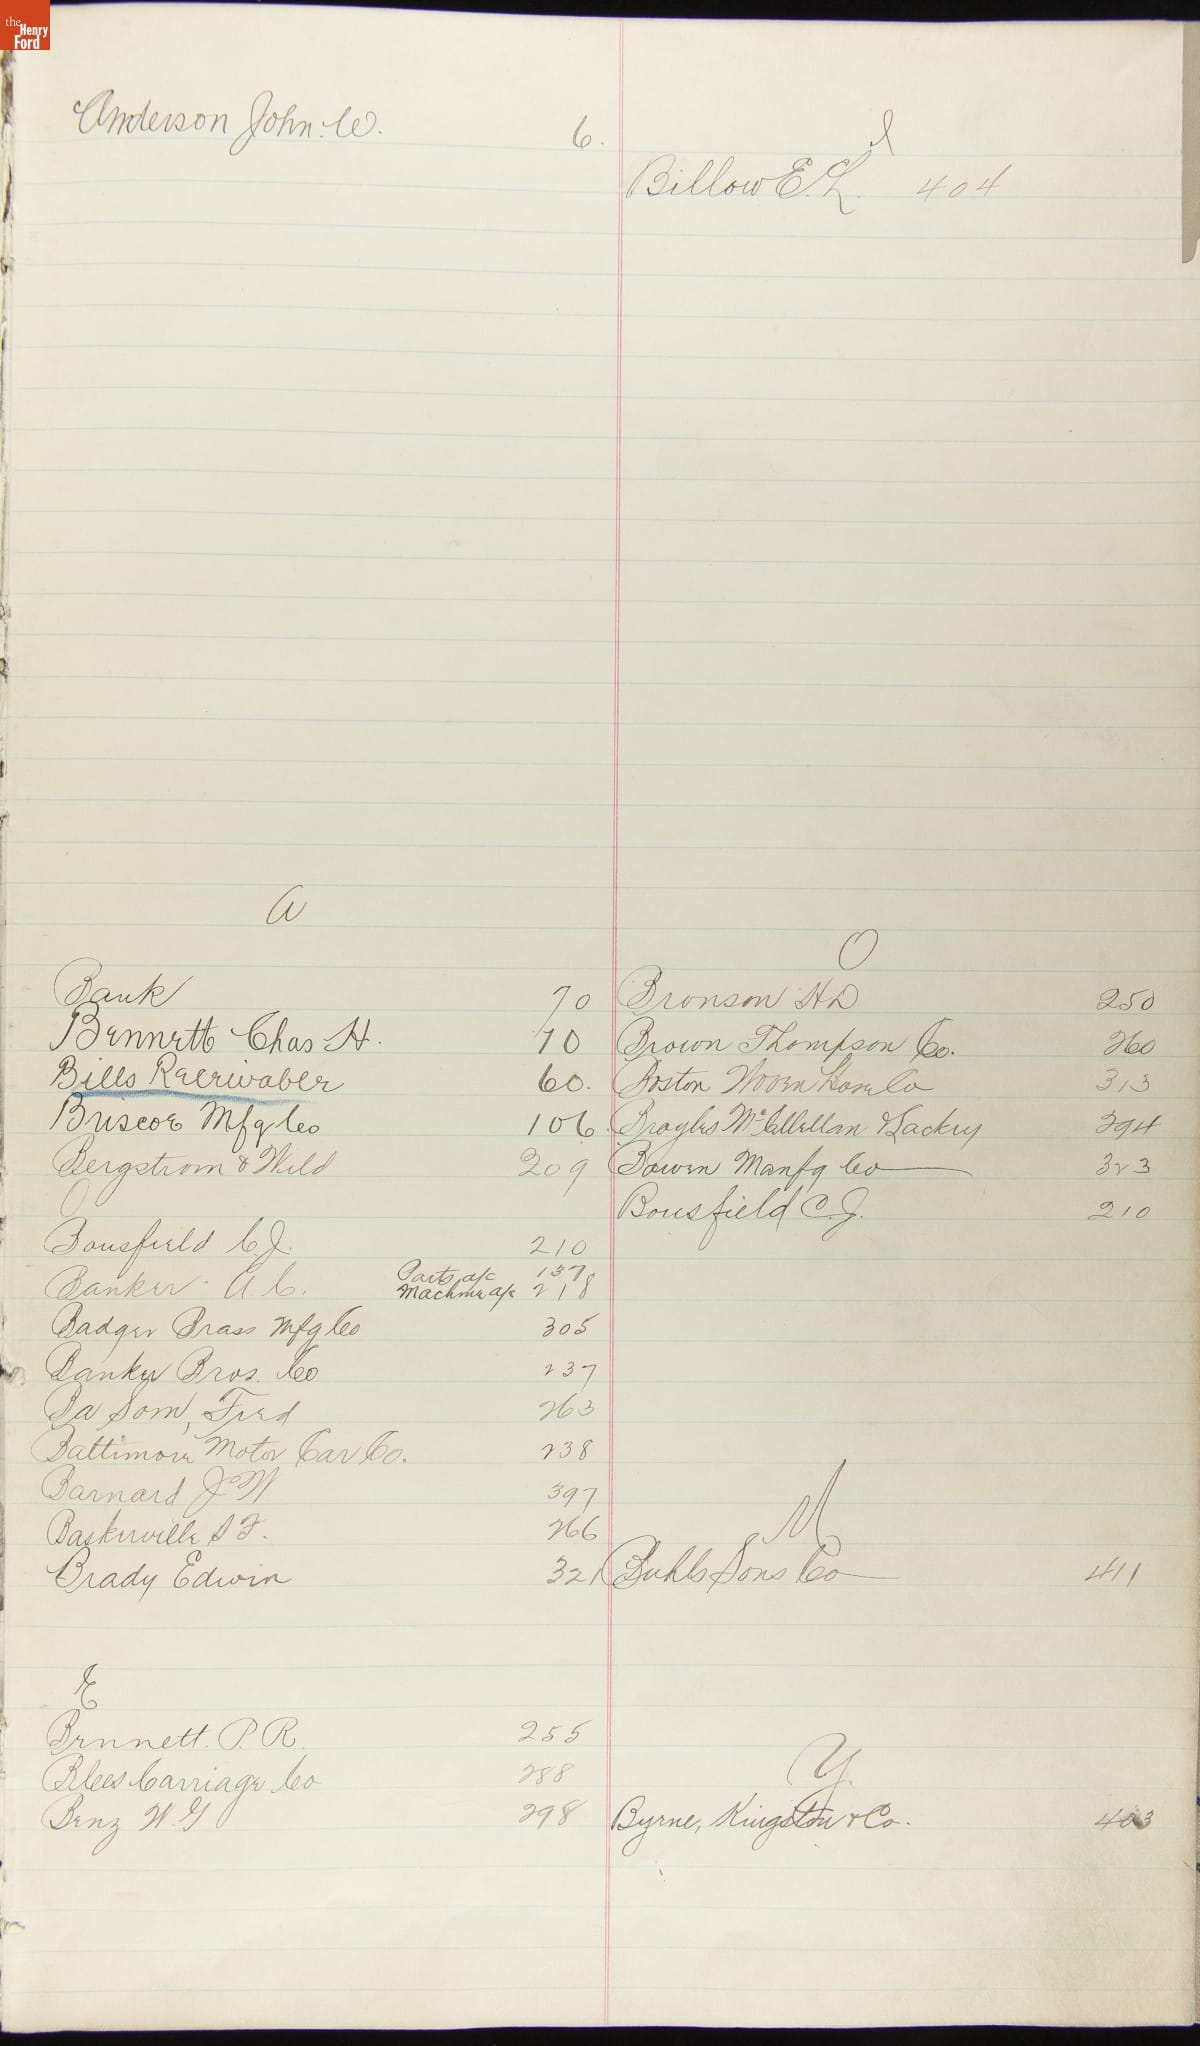 the Henry Ford
Anderson John. W. 6.
A
Bank 70
Bennett Chas H. 10
Bills Receivable 60.
Briscoe Mfg Co 106
Bergstrom & Wild 209
O
Bousfield C. J. 210
Banker A. C. Parts a/c 137
Machine a/c 218
Badger Brass Mfg Co 305
Banker Bros. Co 237
Ba Som, Fred 263
Baltimore Motor Car Co. 238
Barnard J W 397
Baskerville S F. 266
Brady Edwin 321
E
Bennett. P. R. 255
Blees Carriage Co 288
Benz W. G 298
I
Billow E. L. 404
O
Bronson H D 250
Brown Thompson Co. 260
Boston Woven Hose Co 313
Broyles McClellan & Lackey 294
Bowen Manfg Co 323
Bousfield C. J. 210
U
Buhls Sons Co 411
Y.
Byrne, Kingston & Co. 403